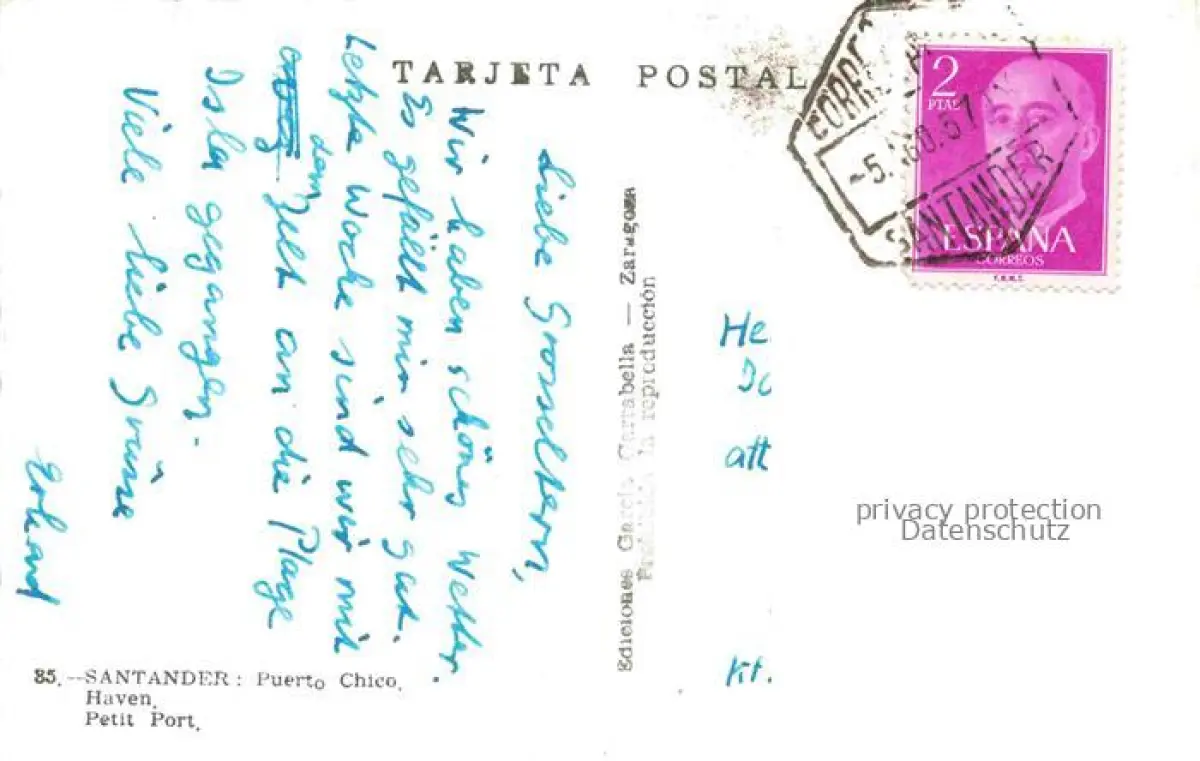 TARJETA POSTAL
Liebe Grosseltern,
Wir haben schönes Wetter.
Es gefällt mir sehr gut.
Letzte Woche sind wir mit
dem Zelt an die Plage
Isla gegangen.
Viele liebe Grüsse
Erhard
85.--SANTANDER: Puerto Chico.
Haven.
Petit Port.
Ediciones García Garrabella — Zaragoza
Prohibida la reproducción
CORREO
-5. AGO. 57
SANTANDER
2
PTAS
ESPAÑA
CORREOS
F.N.M.T.
He.
att
kt.
privacy protection
Datenschutz